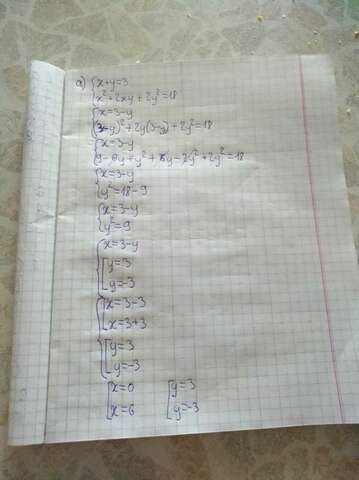 а) {x+y=3
{x²+2xy+2y²=18
{x=3-y
{(3-y)²+2y(3-y)+2y²=18
{x=3-y
{9-6y+y²+6y-2y²+2y²=18
{x=3-y
{y²=18-9
{x=3-y
{y²=9
{x=3-y
[y=3
[y=-3
[x=3-3
[x=3+3
[y=3
[y=-3
[x=0 [y=3
[x=6 [y=-3